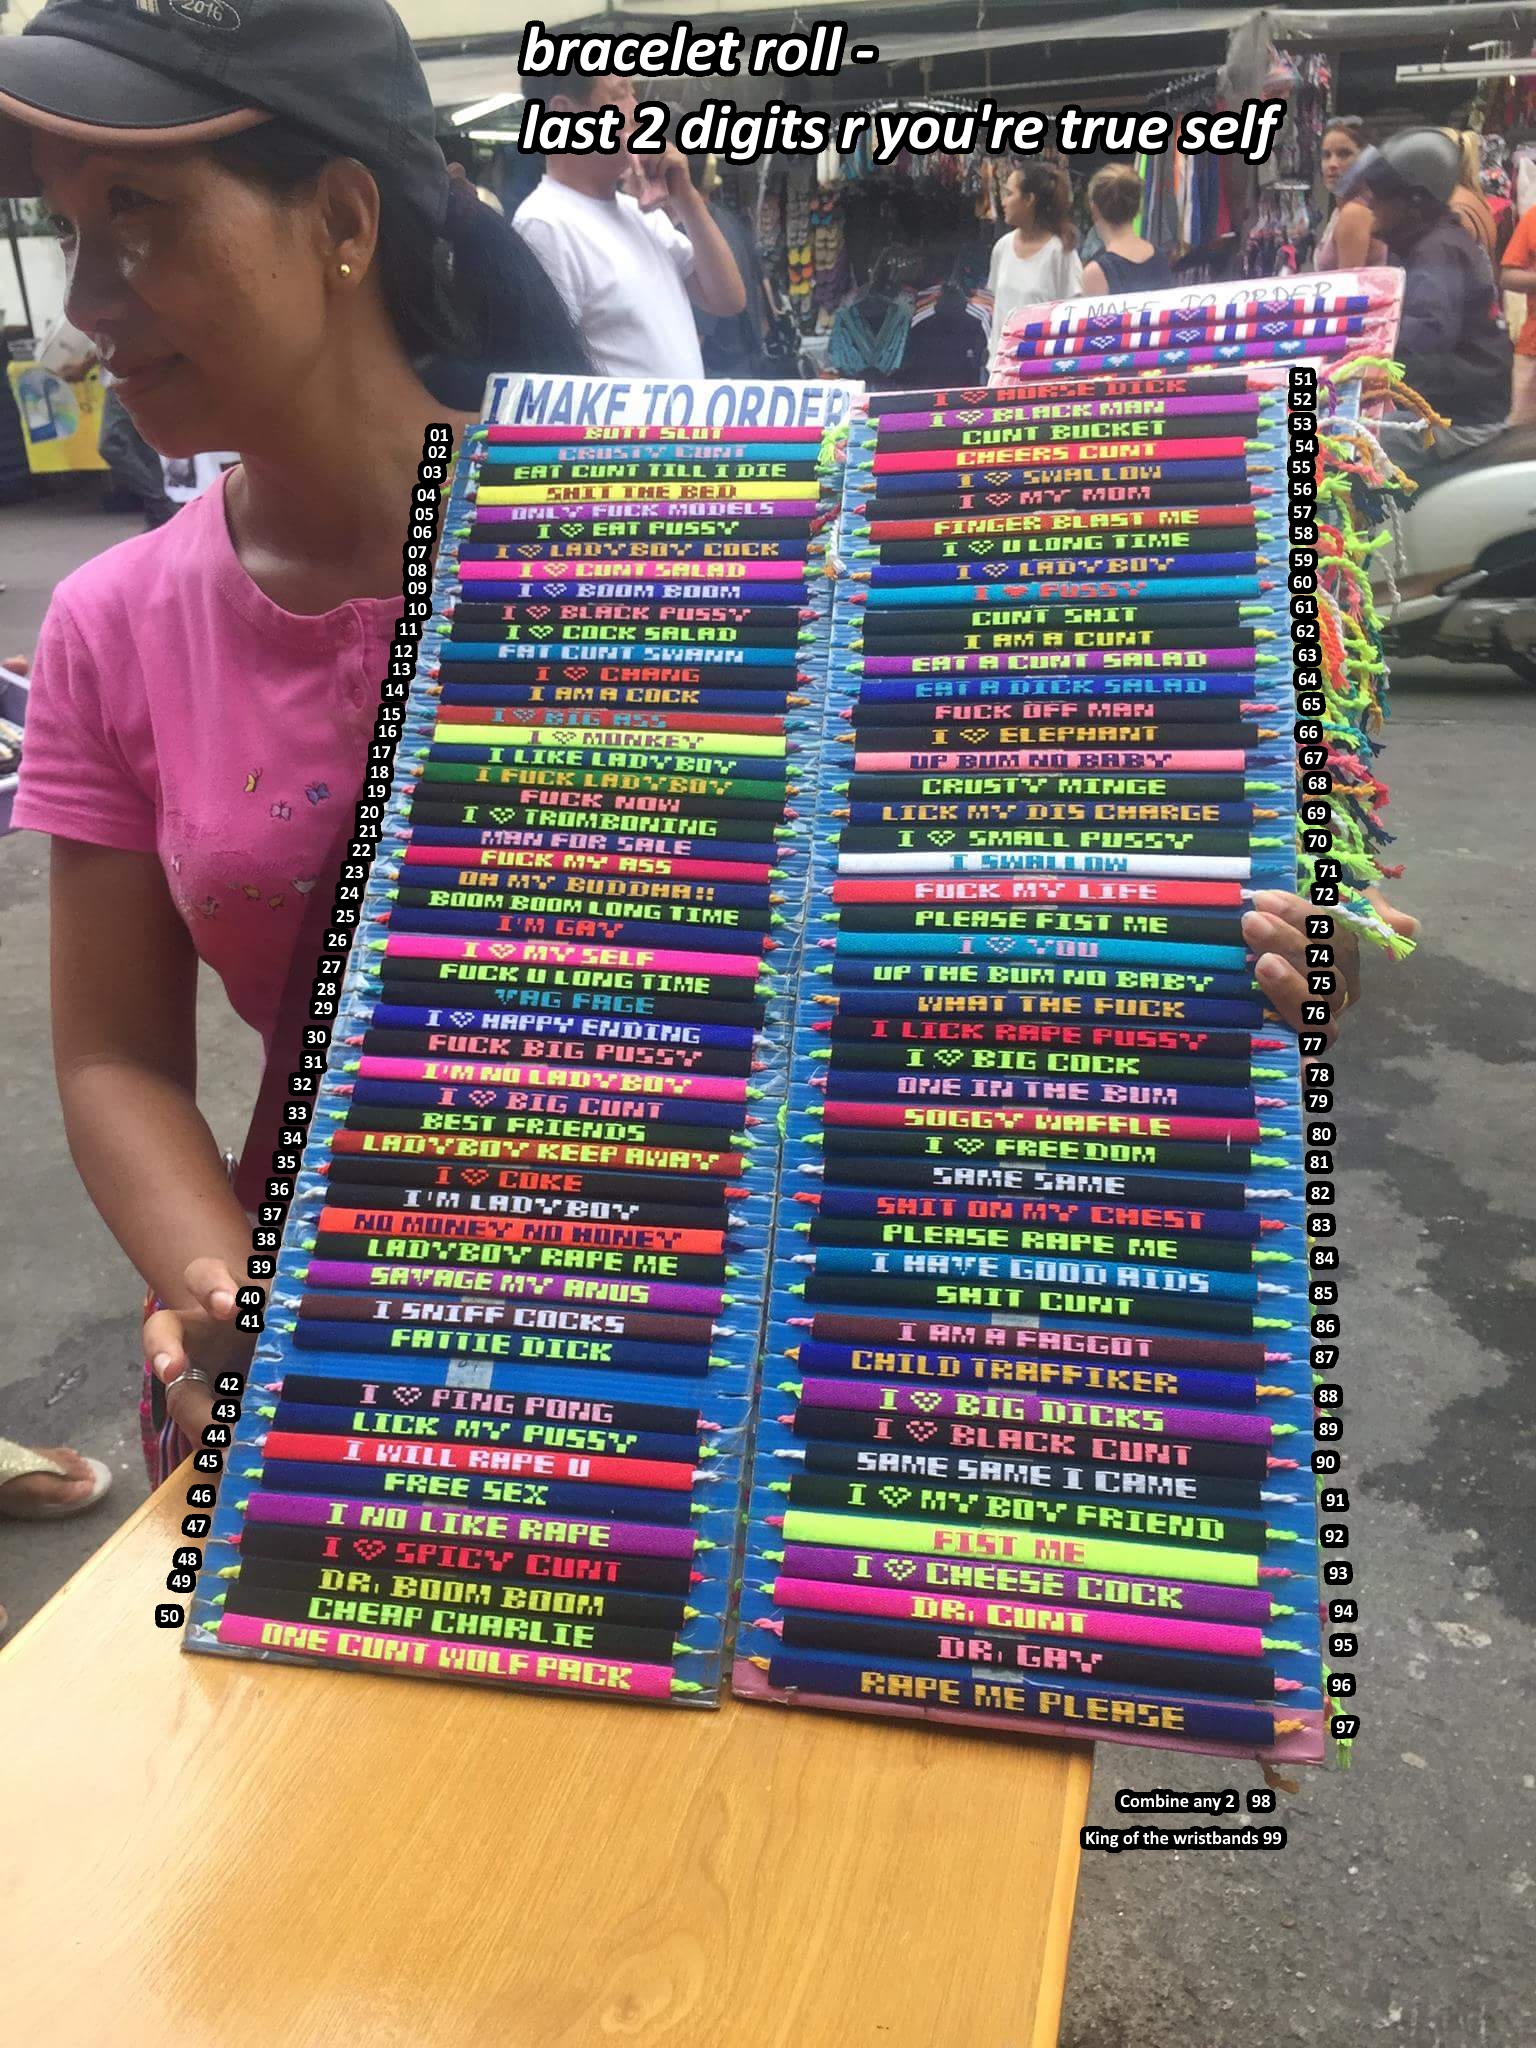 2016
bracelet roll -
last 2 digits r you're true self
I MAKE TO ORDER
I MAKE TO ORDER
01 BUTT SLUT
02 CRUSTY CUNT
03 EAT CUNT TILL I DIE
04 SHIT THE BED
05 ONLY FUCK MODELS
06 I ♡ EAT PUSSY
07 I ♡ LADYBOY COCK
08 I ♡ CUNT SALAD
09 I ♡ BOOM BOOM
10 I ♡ BLACK PUSSY
11 I ♡ COCK SALAD
12 FAT CUNT SWANN
13 I ♡ CHANG
14 I AM A COCK
15 I ♡ BIG ASS
16 I ♡ MONKEY
17 I LIKE LADYBOY
18 I FUCK LADYBOY
19 FUCK NOW
20 I ♡ TROMBONING
21 MAN FOR SALE
22 FUCK MY ASS
23 OH MY BUDDHA!!
24 BOOM BOOM LONG TIME
25 I'M GAY
26 I ♡ MY SELF
27 FUCK U LONG TIME
28 VAG FACE
29 I ♡ HAPPY ENDING
30 FUCK BIG PUSSY
31 I'M NO LADYBOY
32 I ♡ BIG CUNT
33 BEST FRIENDS
34 LADYBOY KEEP AWAY
35 I ♡ COKE
36 I'M LADYBOY
37 NO MONEY NO HONEY
38 LADYBOY RAPE ME
39 SAVAGE MY ANUS
40 I SNIFF COCKS
41 FATTIE DICK
42 I ♡ PING PONG
43 LICK MY PUSSY
44 I WILL RAPE U
45 FREE SEX
46 I NO LIKE RAPE
47 I ♡ SPICY CUNT
48 DR. BOOM BOOM
49 CHEAP CHARLIE
50 ONE CUNT WOLF PACK
51 I ♡ HORSE DICK
52 I ♡ BLACK MAN
53 CUNT BUCKET
54 CHEERS CUNT
55 I ♡ SWALLOW
56 I ♡ MY MOM
57 FINGER BLAST ME
58 I ♡ U LONG TIME
59 I ♡ LADYBOY
60 I ♥ PUSSY
61 CUNT SHIT
62 I AM A CUNT
63 EAT A CUNT SALAD
64 EAT A DICK SALAD
65 FUCK OFF MAN
66 I ♡ ELEPHANT
67 UP BUM NO BABY
68 CRUSTY MINGE
69 LICK MY DIS CHARGE
70 I ♡ SMALL PUSSY
71 I SWALLOW
72 FUCK MY LIFE
73 PLEASE FIST ME
74 I ♡ YOU
75 UP THE BUM NO BABY
76 WHAT THE FUCK
77 I LICK RAPE PUSSY
78 I ♡ BIG COCK
79 ONE IN THE BUM
80 SOGGY WAFFLE
81 I ♡ FREEDOM
82 SAME SAME
83 SHIT ON MY CHEST
84 PLEASE RAPE ME
85 I HAVE GOOD AIDS
86 SHIT CUNT
87 I AM A FAGGOT
88 CHILD TRAFFIKER
89 I ♡ BIG DICKS
90 I ♡ BLACK CUNT
91 SAME SAME I CAME
92 I ♡ MY BOY FRIEND
93 FIST ME
94 I ♡ CHEESE COCK
95 DR. CUNT
96 DR. GAY
97 RAPE ME PLEASE
Combine any 2 98
King of the wristbands 99